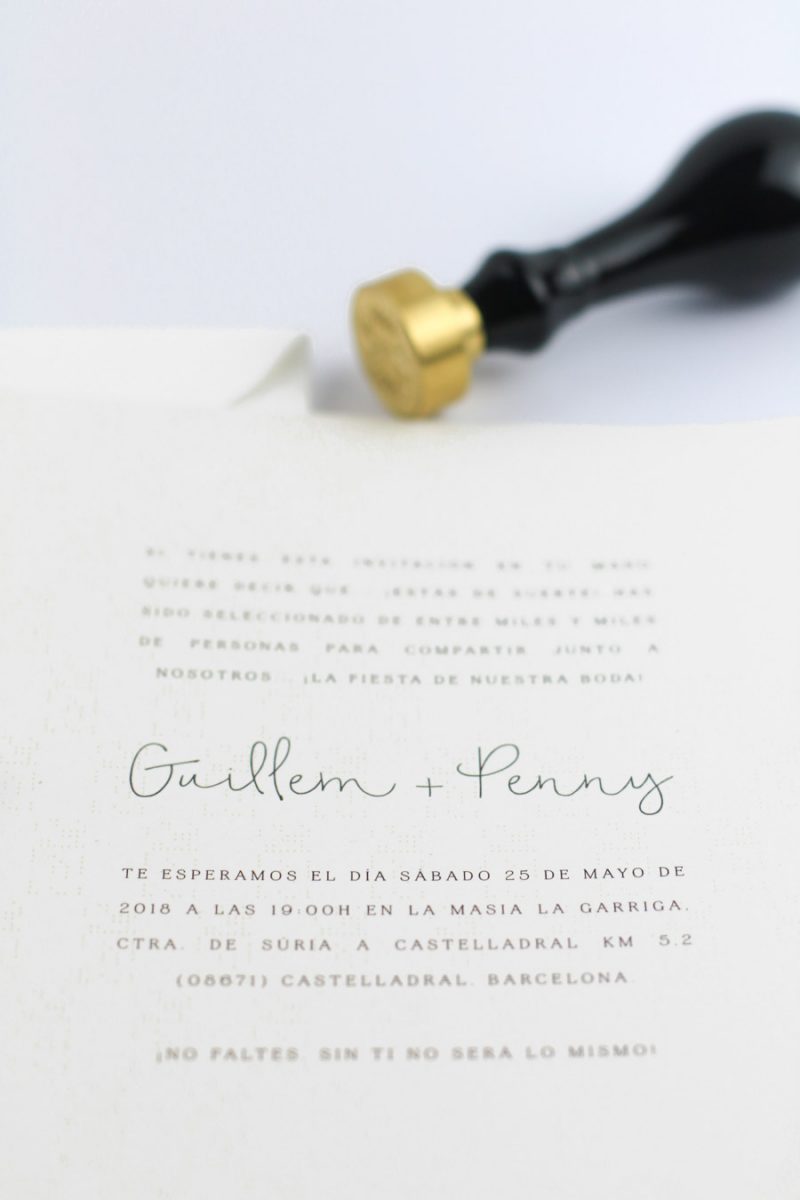 SI TIENES ESTA INVITACIÓN EN TU MANO
QUIERE DECIR QUE... ¡ESTÁS DE SUERTE! HAS
SIDO SELECCIONADO DE ENTRE MILES Y MILES
DE PERSONAS PARA COMPARTIR JUNTO A
NOSOTROS... ¡LA FIESTA DE NUESTRA BODA!
Guillem + Penny
TE ESPERAMOS EL DÍA SÁBADO 25 DE MAYO DE
2018 A LAS 19:00H EN LA MASIA LA GARRIGA,
CTRA. DE SÚRIA A CASTELLADRAL KM 5.2
(08671) CASTELLADRAL. BARCELONA.
¡NO FALTES, SIN TI NO SERÁ LO MISMO!